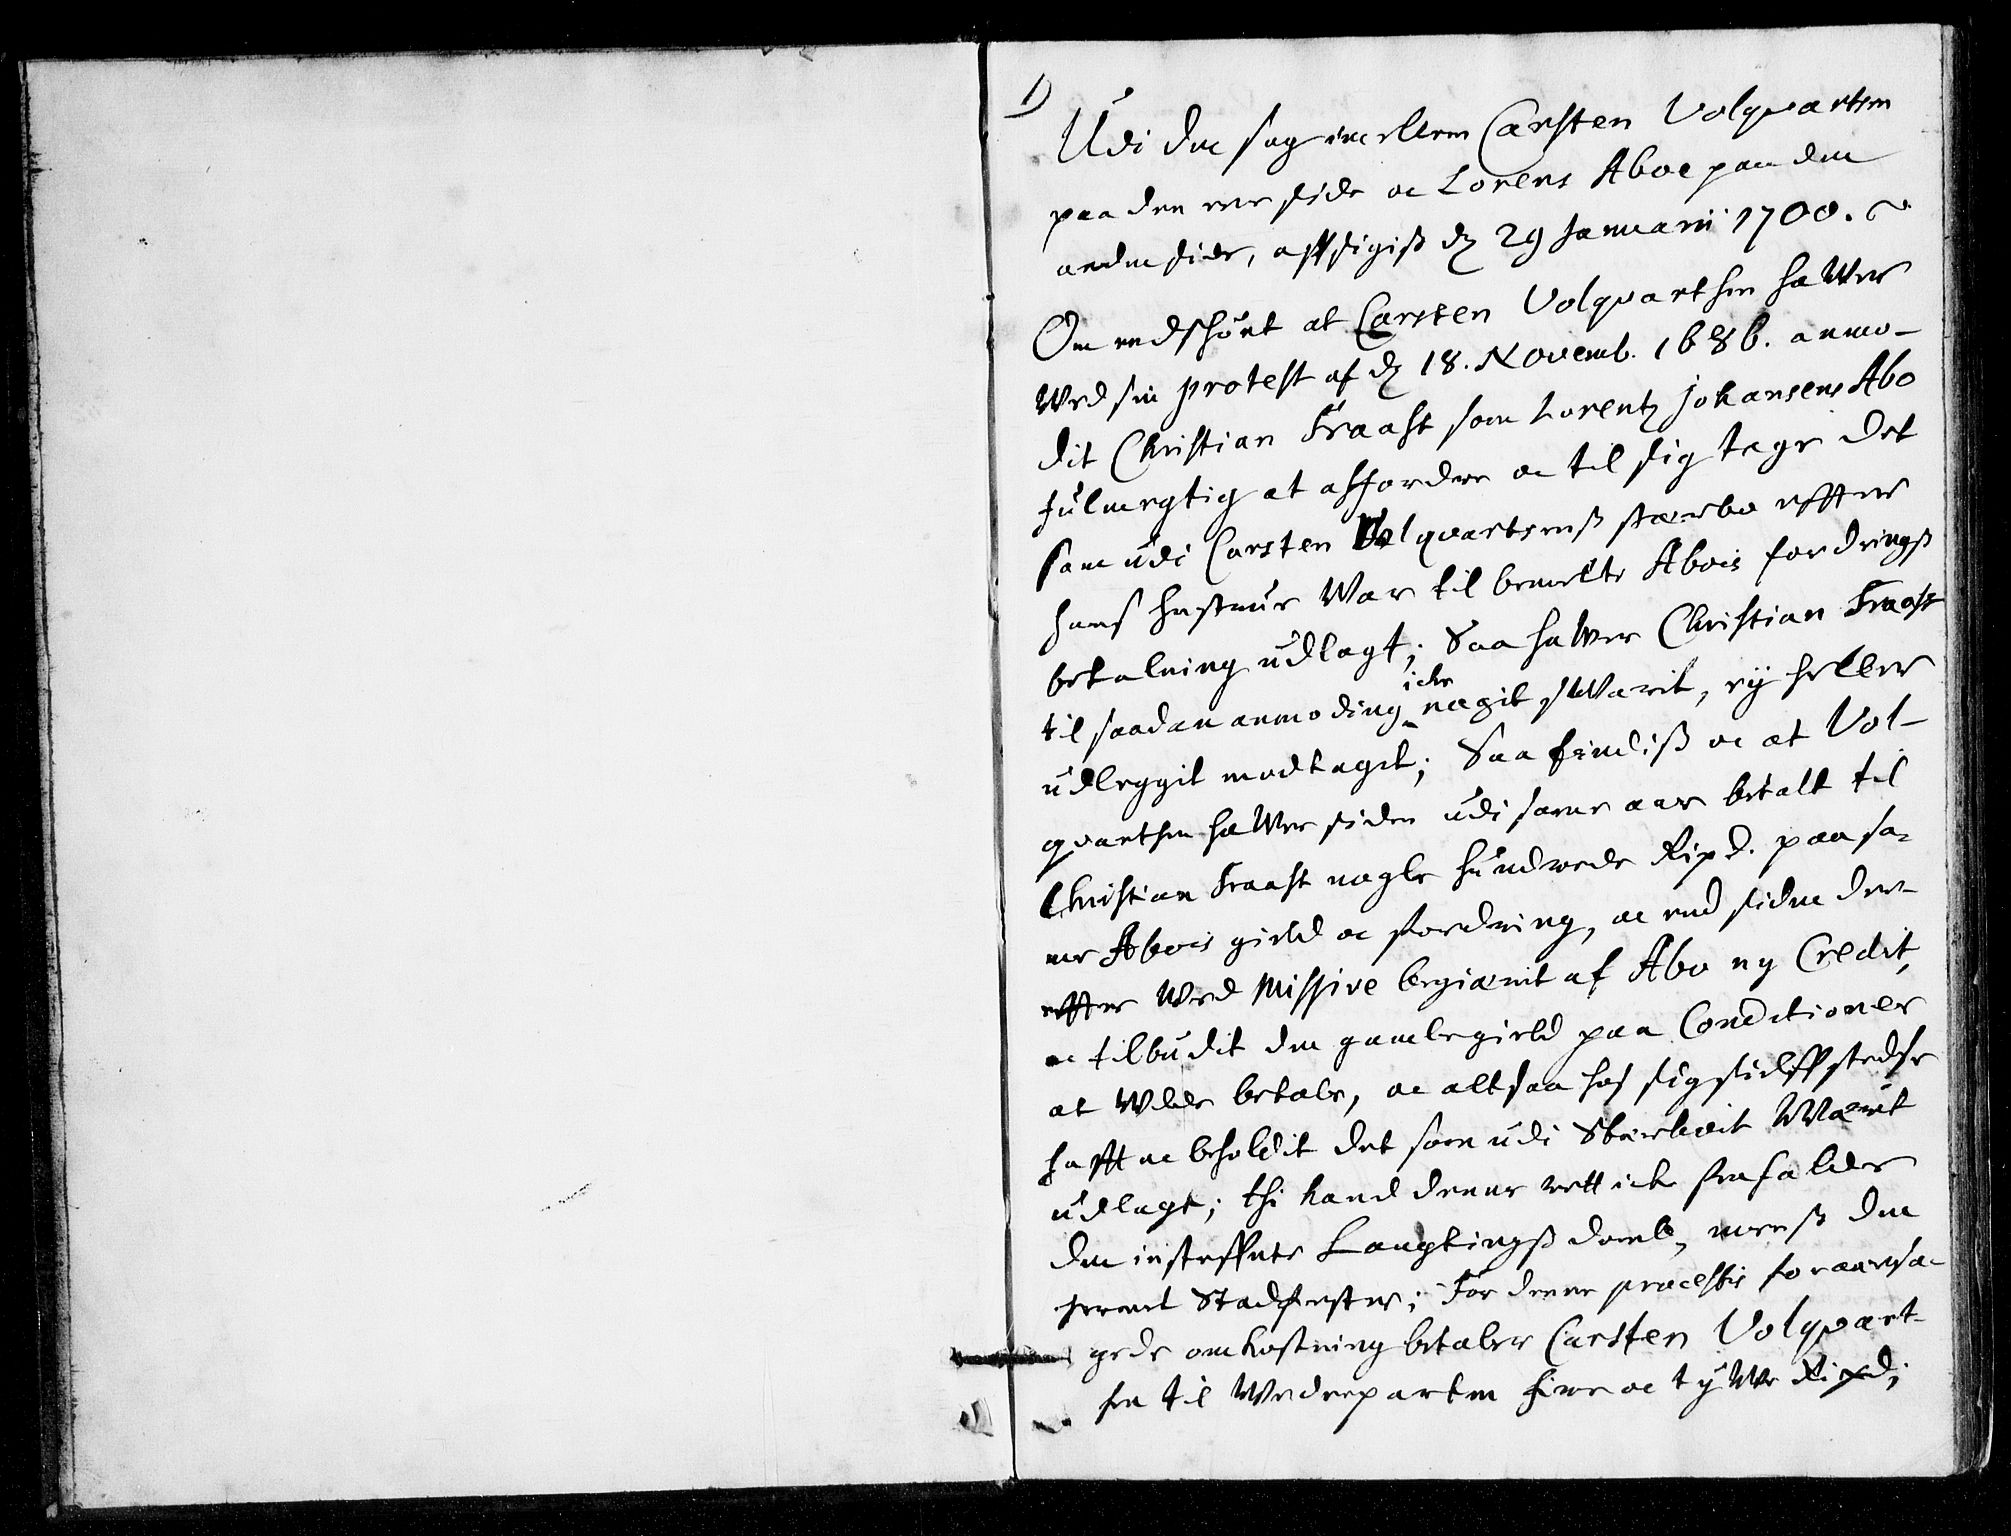 1)
Udi den sag imellem Carsten Volqvartsen
paa den eene side oc Lorens Aboe paa den
anden side, affsigiß dz 29 Januarii 1700.
Om endskiønt at Carsten Volqvartsen haffver
Ved sin protest af dz 18. Novemb. 1686. anmo-
dit Christian Fraast som Lorentz Johansens Abo
fulmegtig at affordre oc til sig tage det
som udi Carsten Volqvartsens stærbo effter
hans hustrue War til bemelte Abois fordrings
betalning udlagt; Saa haffver Christian Fraast
til saadan anmoding icke nogit sWarit, ey heller
udleggit modtaget; Saa findiß oc at Vol-
qvartsen haffver siden udi same aar betalt til
Christian Fraast nogle hundrede Rixd. paa sa-
me Abois gield oc fordring, oc end siden der-
effter Ved Missive begiærit af Abo ny Credit,
oc tilbudit den gamle gield paa Conditioner
at Wille betale, oc altsaa hos sig sielff stedse
hafft oc beholdit det som udi Sterboit Waarit
udlagt; thi kand denne rett ick frafalde
den instefnte Laugtings domb, mens den
hermed Stadfester; For denne processis foraarsa-
gede omkostning betaler Carsten Volqvart-
sen til Vederparten fire oc tyWe Rixd;